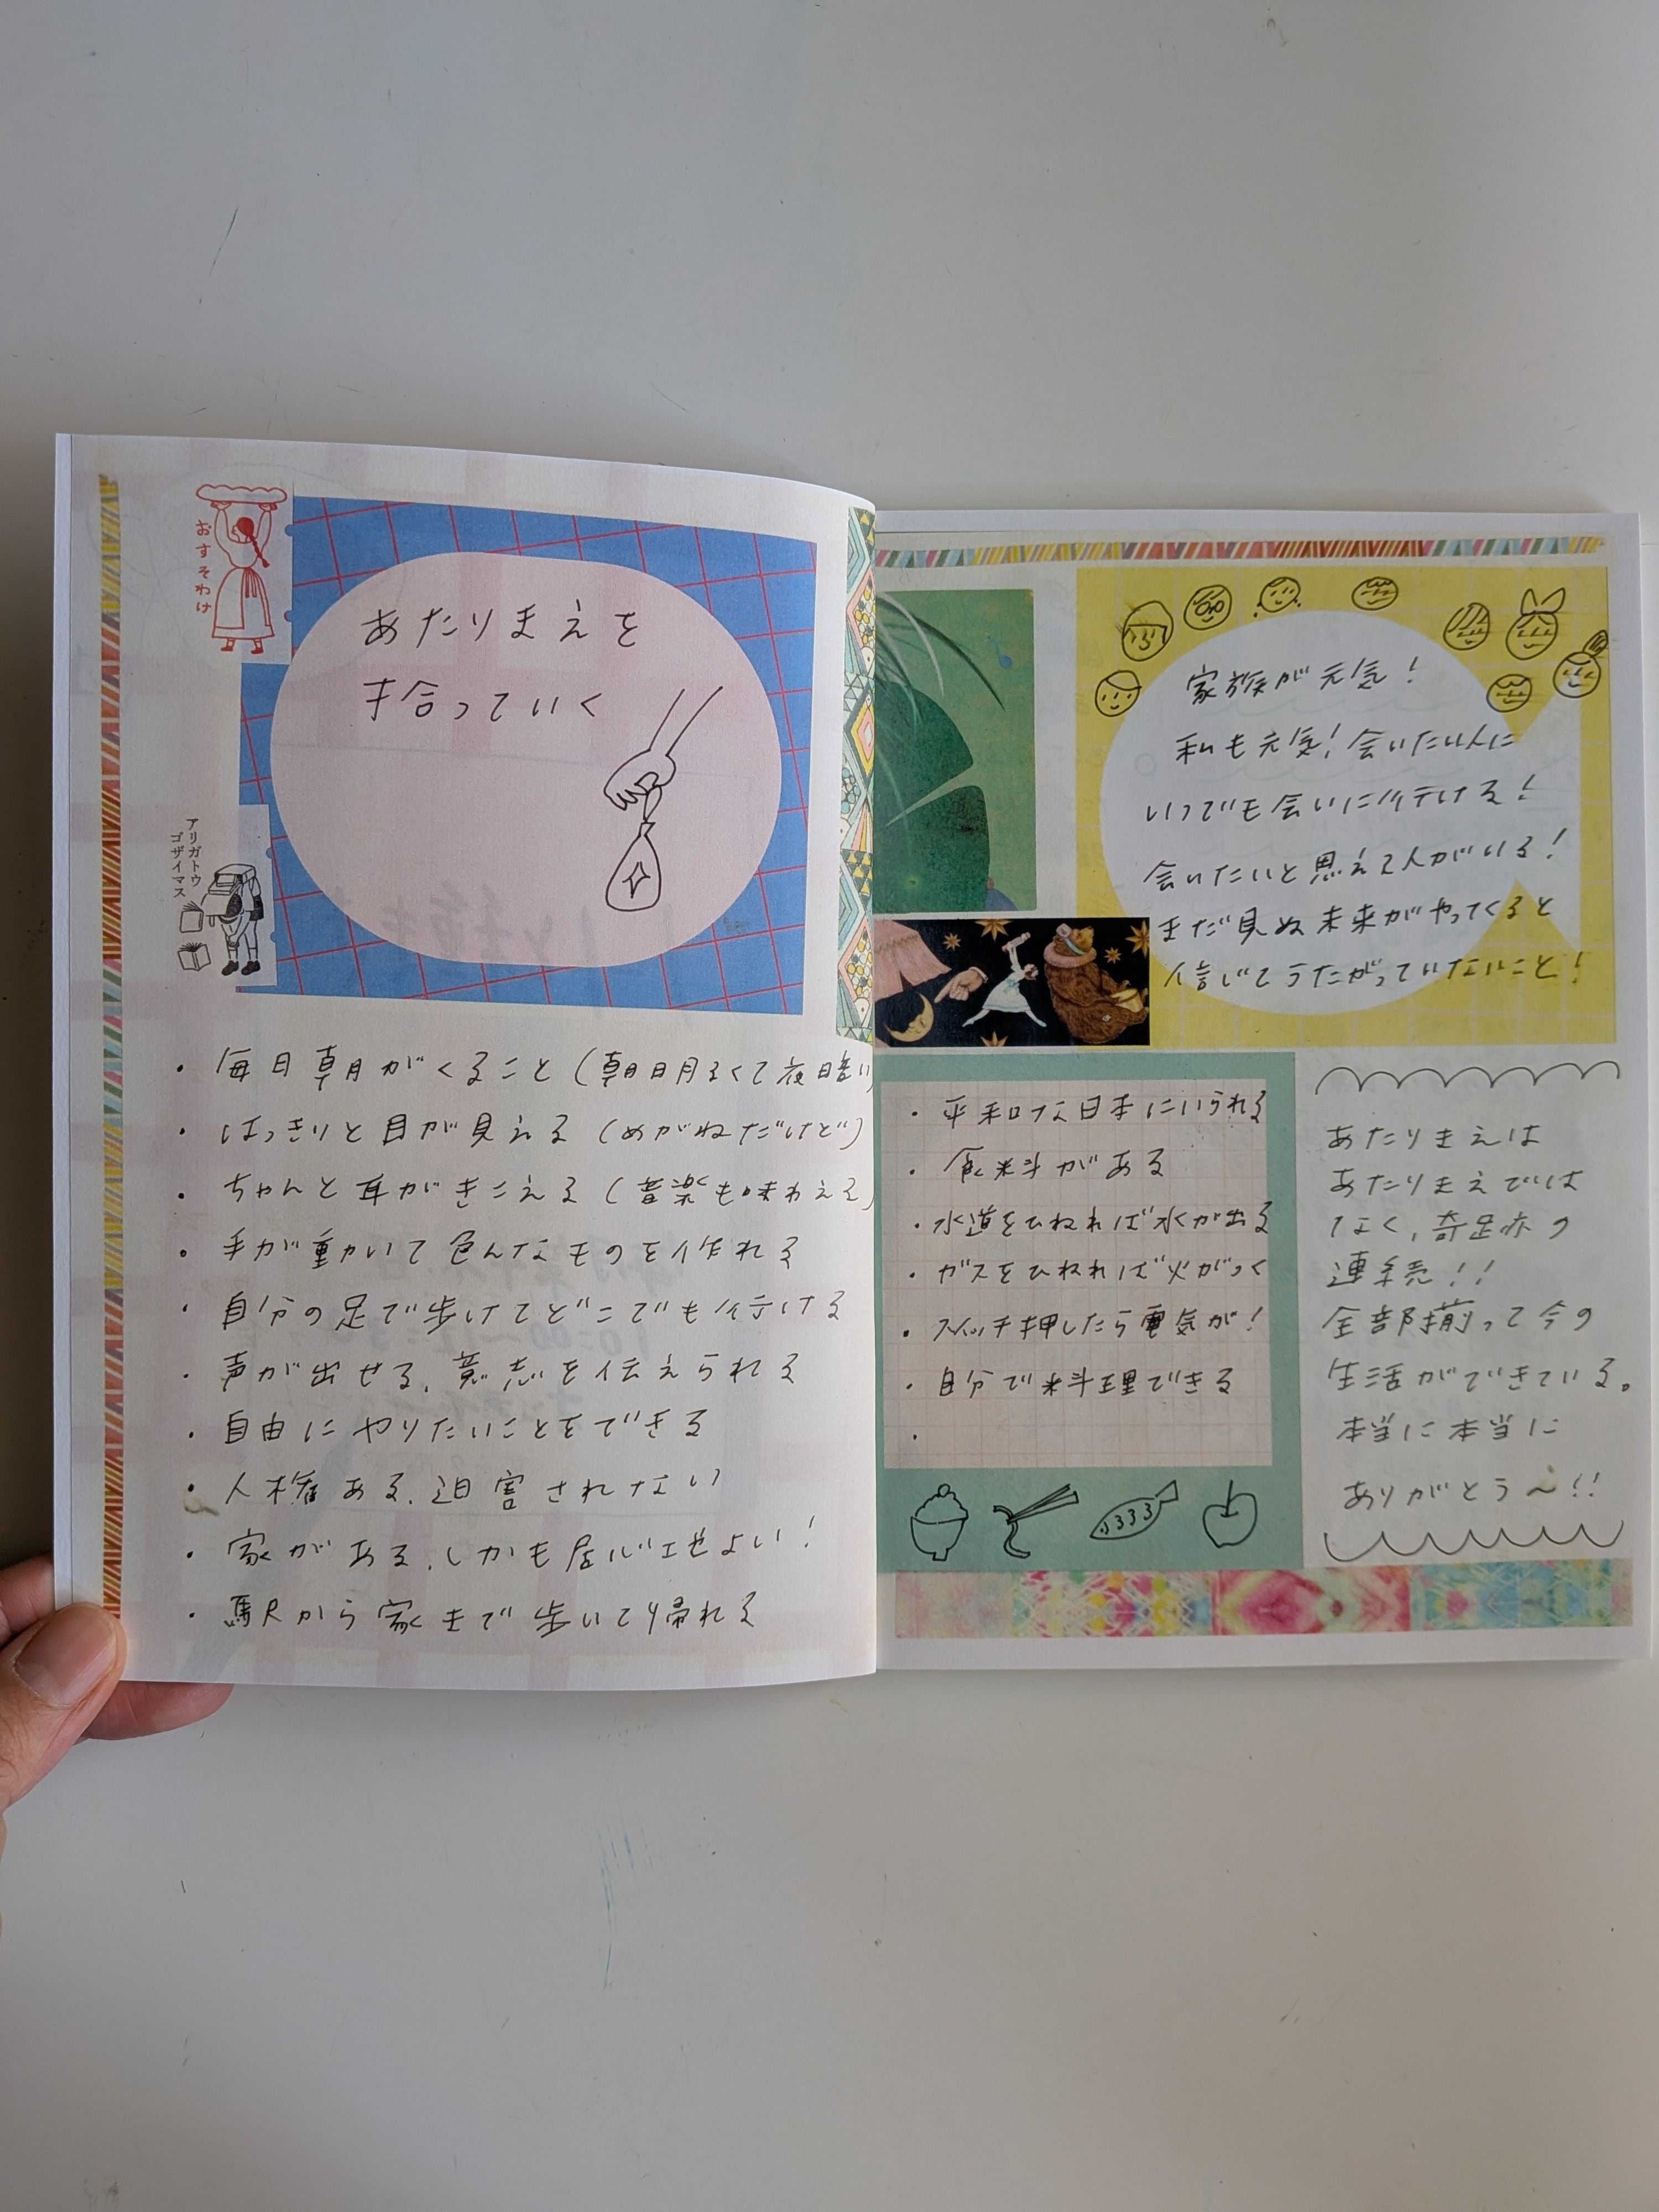 おすそわけ
あたりまえを
拾っていく
アリガトウ
ゴザイマス
・毎日朝がくること(朝明るくて夜暗い)
・はっきりと目が見える(めがねだけど)
・ちゃんと耳がきこえる(音楽も味わえる)
・手が動いて色んなものを作れる
・自分の足で歩けてどこでも行ける
・声が出せる、意志を伝えられる
・自由にやりたいことをできる
・人権ある、迫害されない
・家がある、しかも居心地よい!
・駅から家まで歩いて帰れる
家族が元気!
私も元気!会いたい人に
いつでも会いに行ける!
会いたいと思える人がいる!
まだ見ぬ未来がやってくると
信じてうたがっていないこと!
・平和な日本にいられる
・食料がある
・水道をひねれば水が出る
・ガスをひねれば火がつく
・スイッチ押したら電気が!
・自分で料理できる
・
あたりまえは
あたりまえでは
なく、奇跡の
連続!!
全部揃って今の
生活ができている。
本当に本当に
ありがとう〜!!